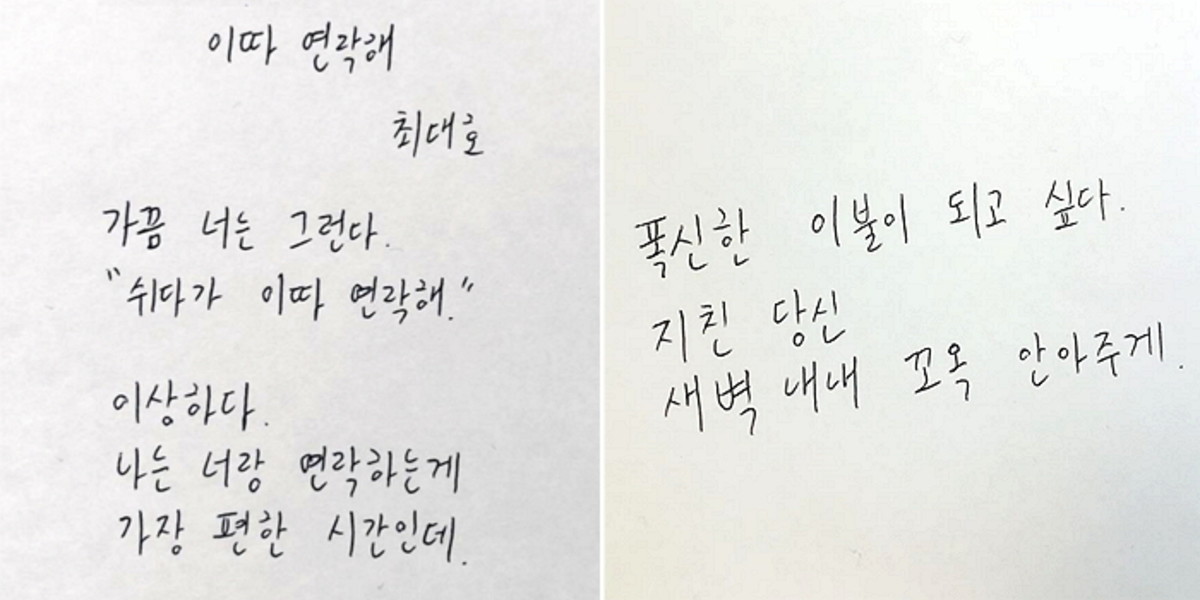 이따 연락해
최대호
가끔 너는 그런다.
"쉬다가 이따 연락해."
이상하다.
나는 너랑 연락하는게
가장 편한 시간인데.
폭신한 이불이 되고 싶다.
지친 당신
새벽 내내 꼬옥 안아주게.